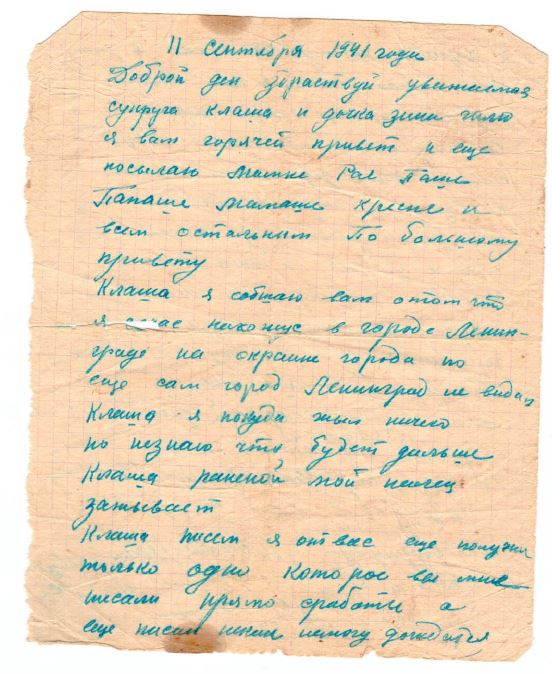 11 сентября 1941 года
Доброй ден здраствуй уважаемая
супруга клаша и дочка зина шлю
я вам горячей привет и еще
посылаю мамне Рае Паше
Папаше мамаше кресне и
всем остальным По большому
привету
Клаша я собщаю вам о том что
я сичас нахожус в городе Ленин-
граде на окраине города но
еще сам город Ленинград не видал
Клаша я покуда жыв ничего
но незнаю что будет дальше
Клаша раненой мой палец
зажывает
Клаша писем я от вас еще получил
только одно которое вы мне
писали прямо сработы а
еще писем никак немогу дождатся